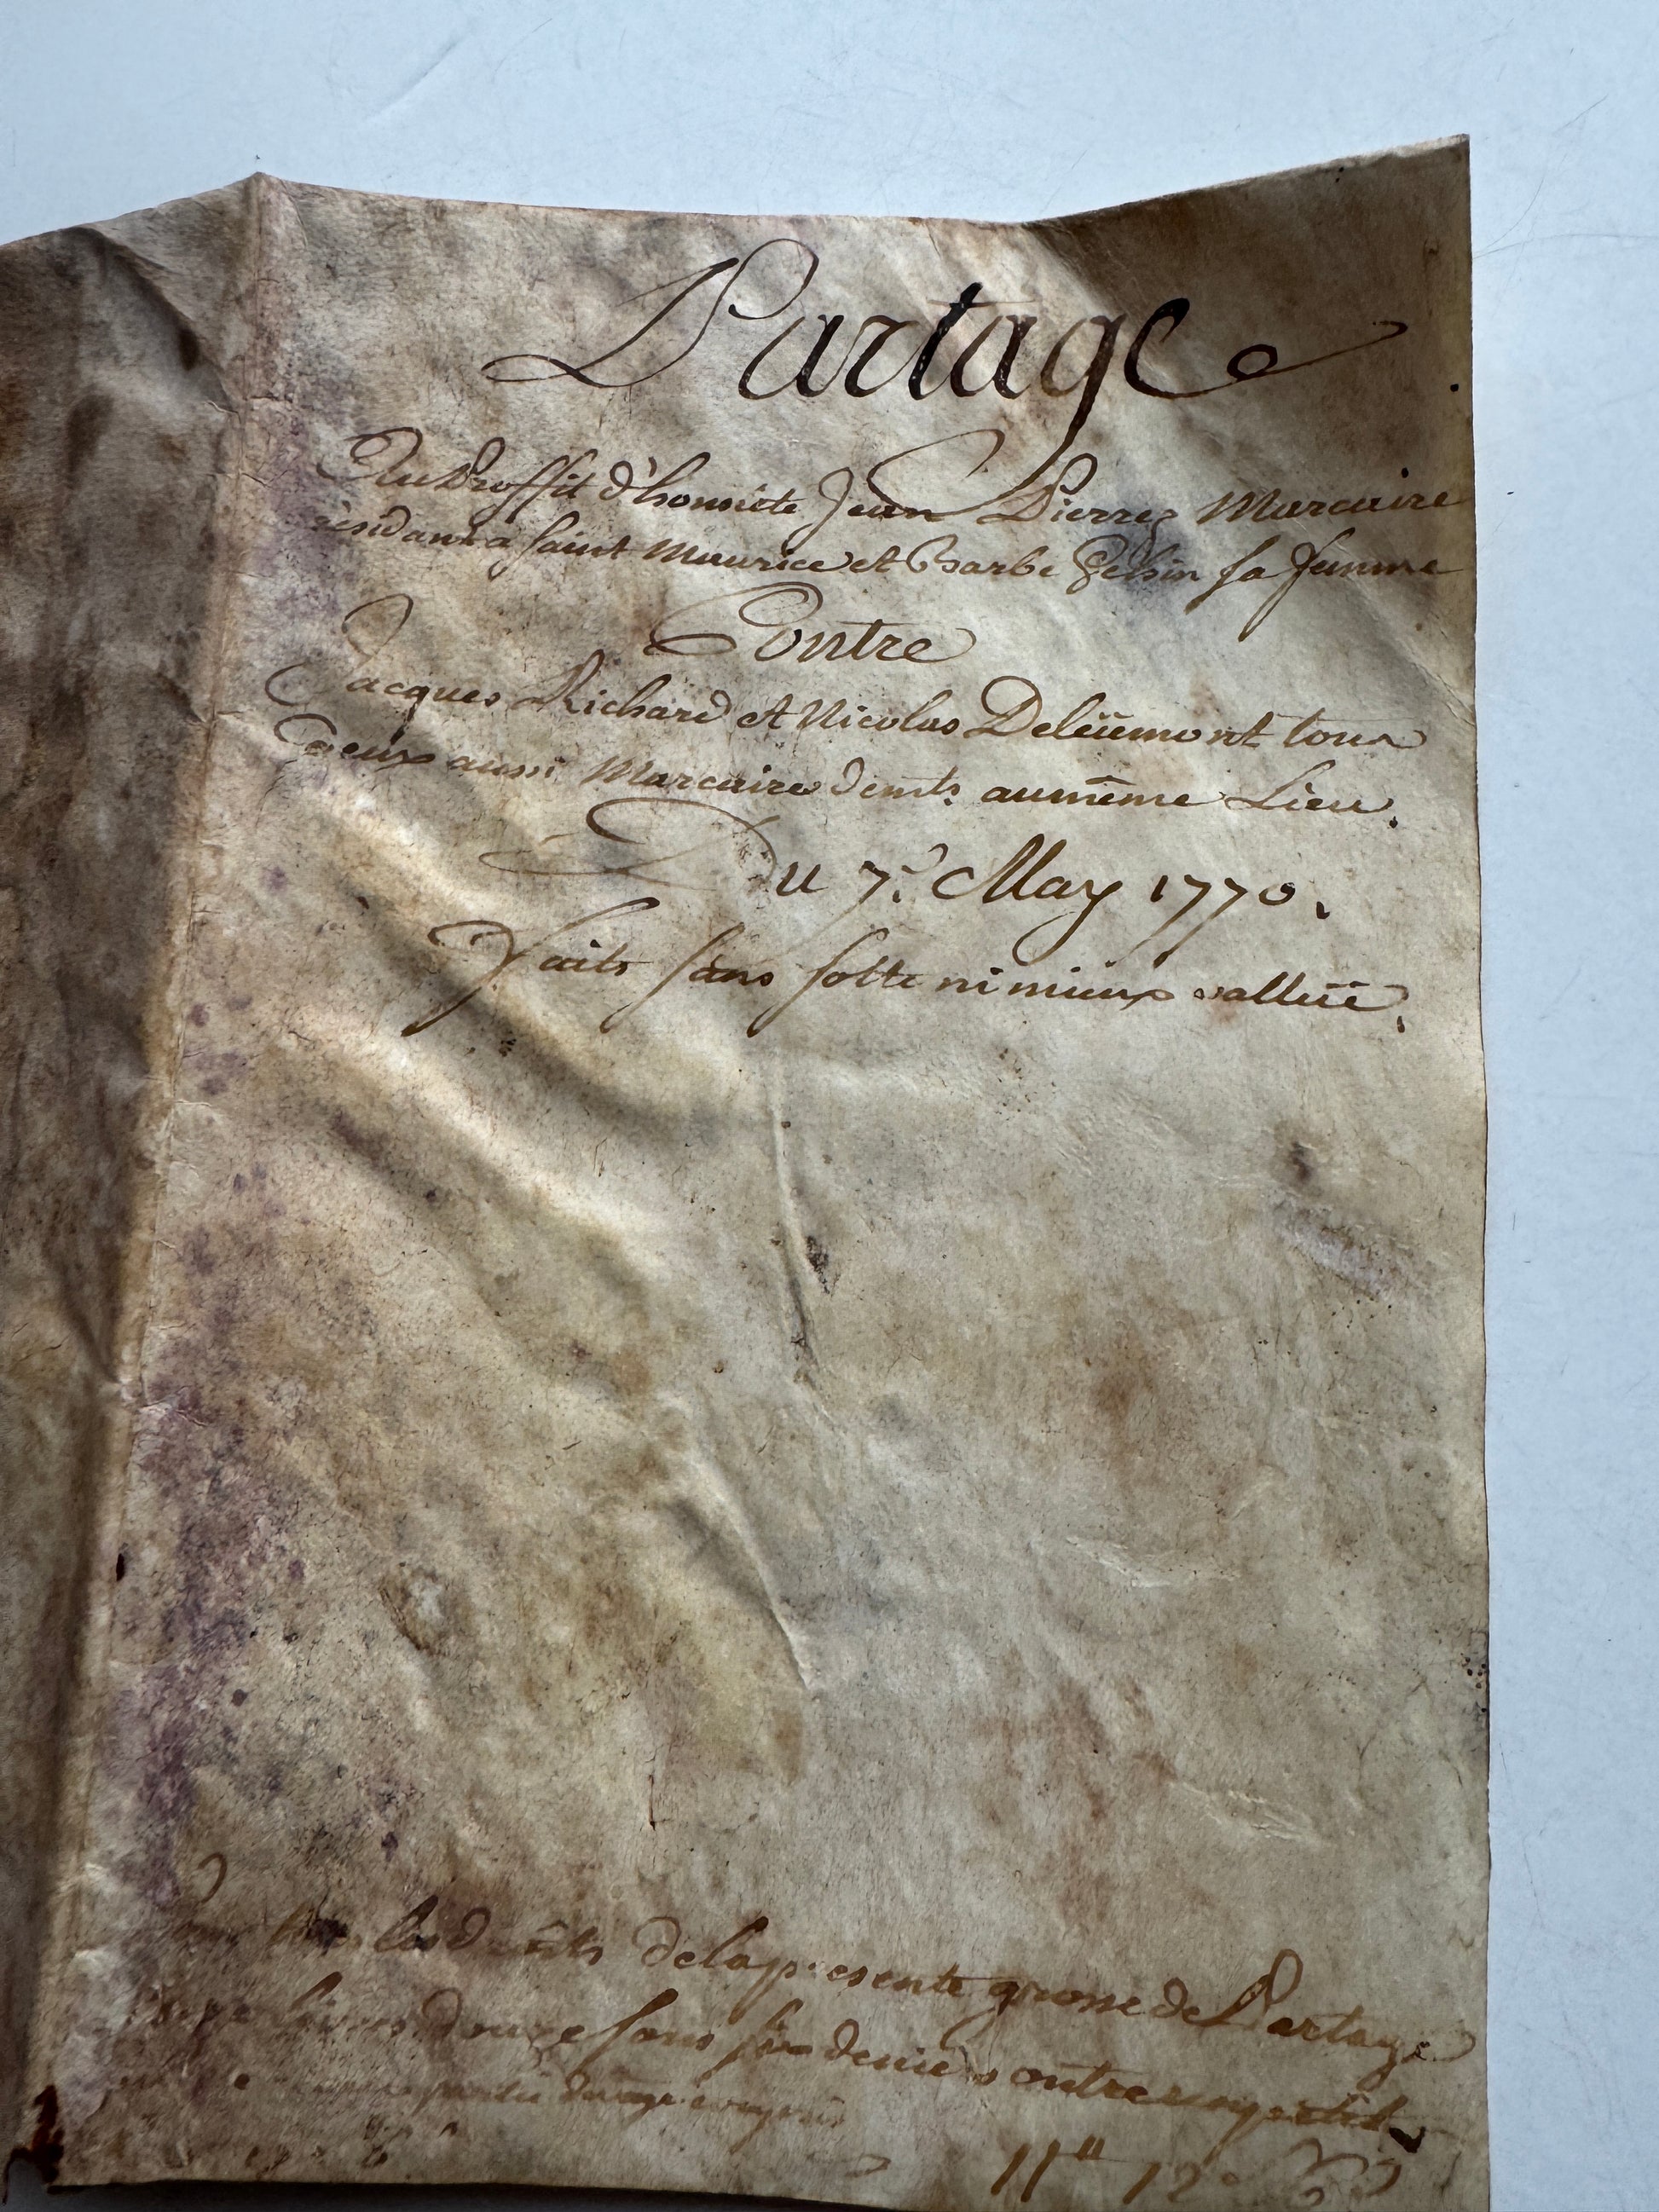 Partage
Au Proffit d'honneste Jean Pierre Marcaire
résidant a saint Maurice et Barbe Gehin sa femme
Contre
Jacques Richard et Nicolas Deleümont tous
deux aussi Marcaires demts. au même Lieu.
Du 7e. May 1770.
Faits sans solte ni mieux valluë.
les droits de la presente grosse de Partage
livres douze sous six deniers outre
11ll 12s